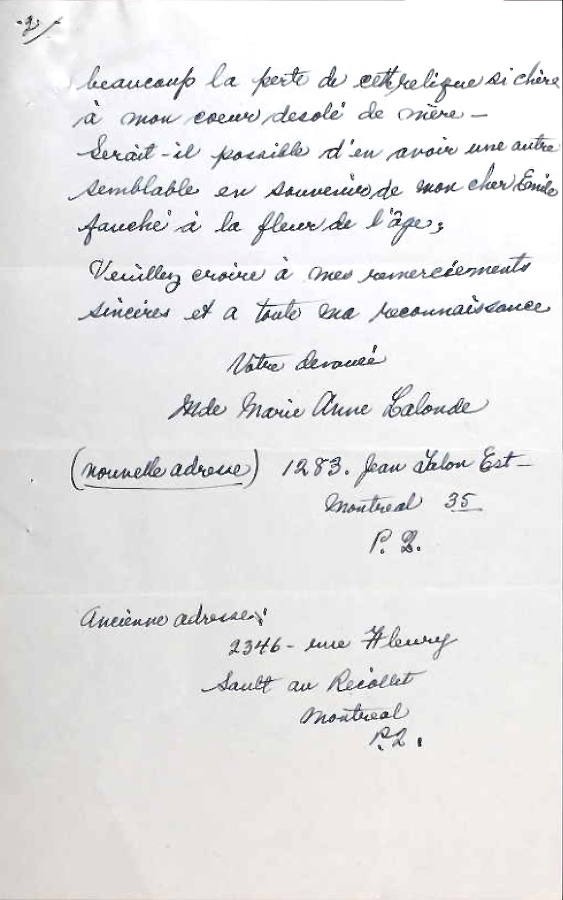 -2/
beaucoup la perte de cette relique si chère
à mon coeur desolé de mère -
Serait-il possible d'en avoir une autre
semblable en souvenir de mon cher Emile
fauché à la fleur de l'âge,
Veuillez croire à mes remerciements
sincères et a toute ma reconnaissance
Votre devouée
Mde Marie Anne Lalonde
(nouvelle adresse) 1283. Jean Talon Est -
Montreal 35
P. Q.
Ancienne adresse:
2346 - rue Fleury
Sault au Recollet
Montreal
P.Q.